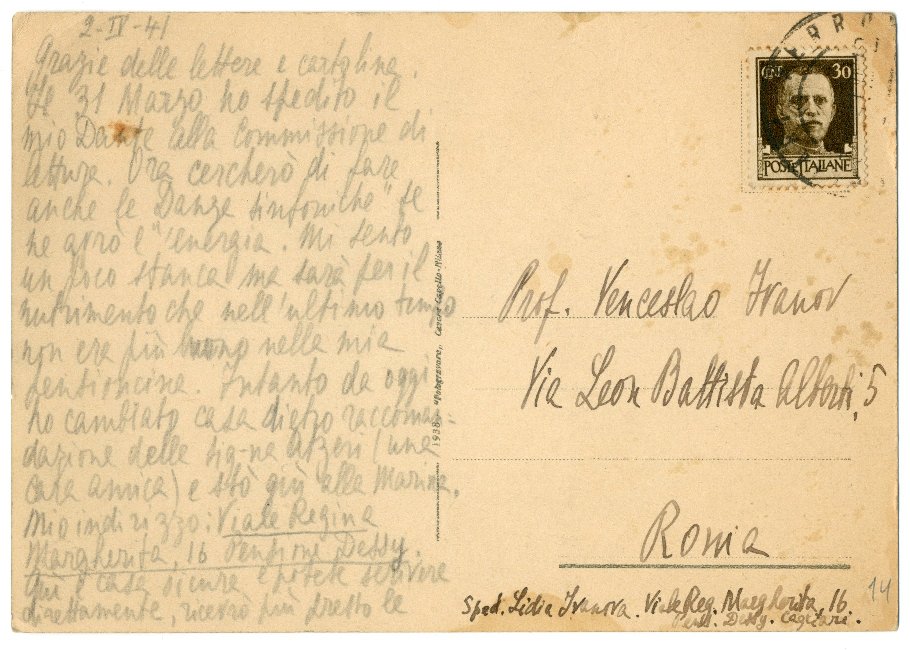 2-IV-41
Grazie delle lettere e cartoline.
Il 31 Marzo ho spedito il
mio Dante alla Commissione di
letture. Ora cercherò di fare
anche le Danze sinfoniche" se
ne avrò l'energia. Mi sento
un poco stanca ma sarà per il
nutrimento che nell'ultimo tempo
non era più buono nella mia
pensioncina. Intanto da oggi
ho cambiato casa dietro raccoman-
dazione delle sig-ne Atzeri (una
casa amica) e stò giù alla Marina.
Mio indirizzo: Viale Regina
Margherita, 16 Pensione Dessy.
Qui è casa sicura e potete scrivere
direttamente, riceverò più presto le
1938 - "Fotogravure, Cesare Capello-Milano
CENT 30
POSTE ITALIANE
Prof. Venceslao Ivanov
Via Leon Battista Alberti, 5
Roma
Sped. Lidia Ivanova. Viale Reg. Margherita, 16.
Pens. Dessy. Cagliari.
14